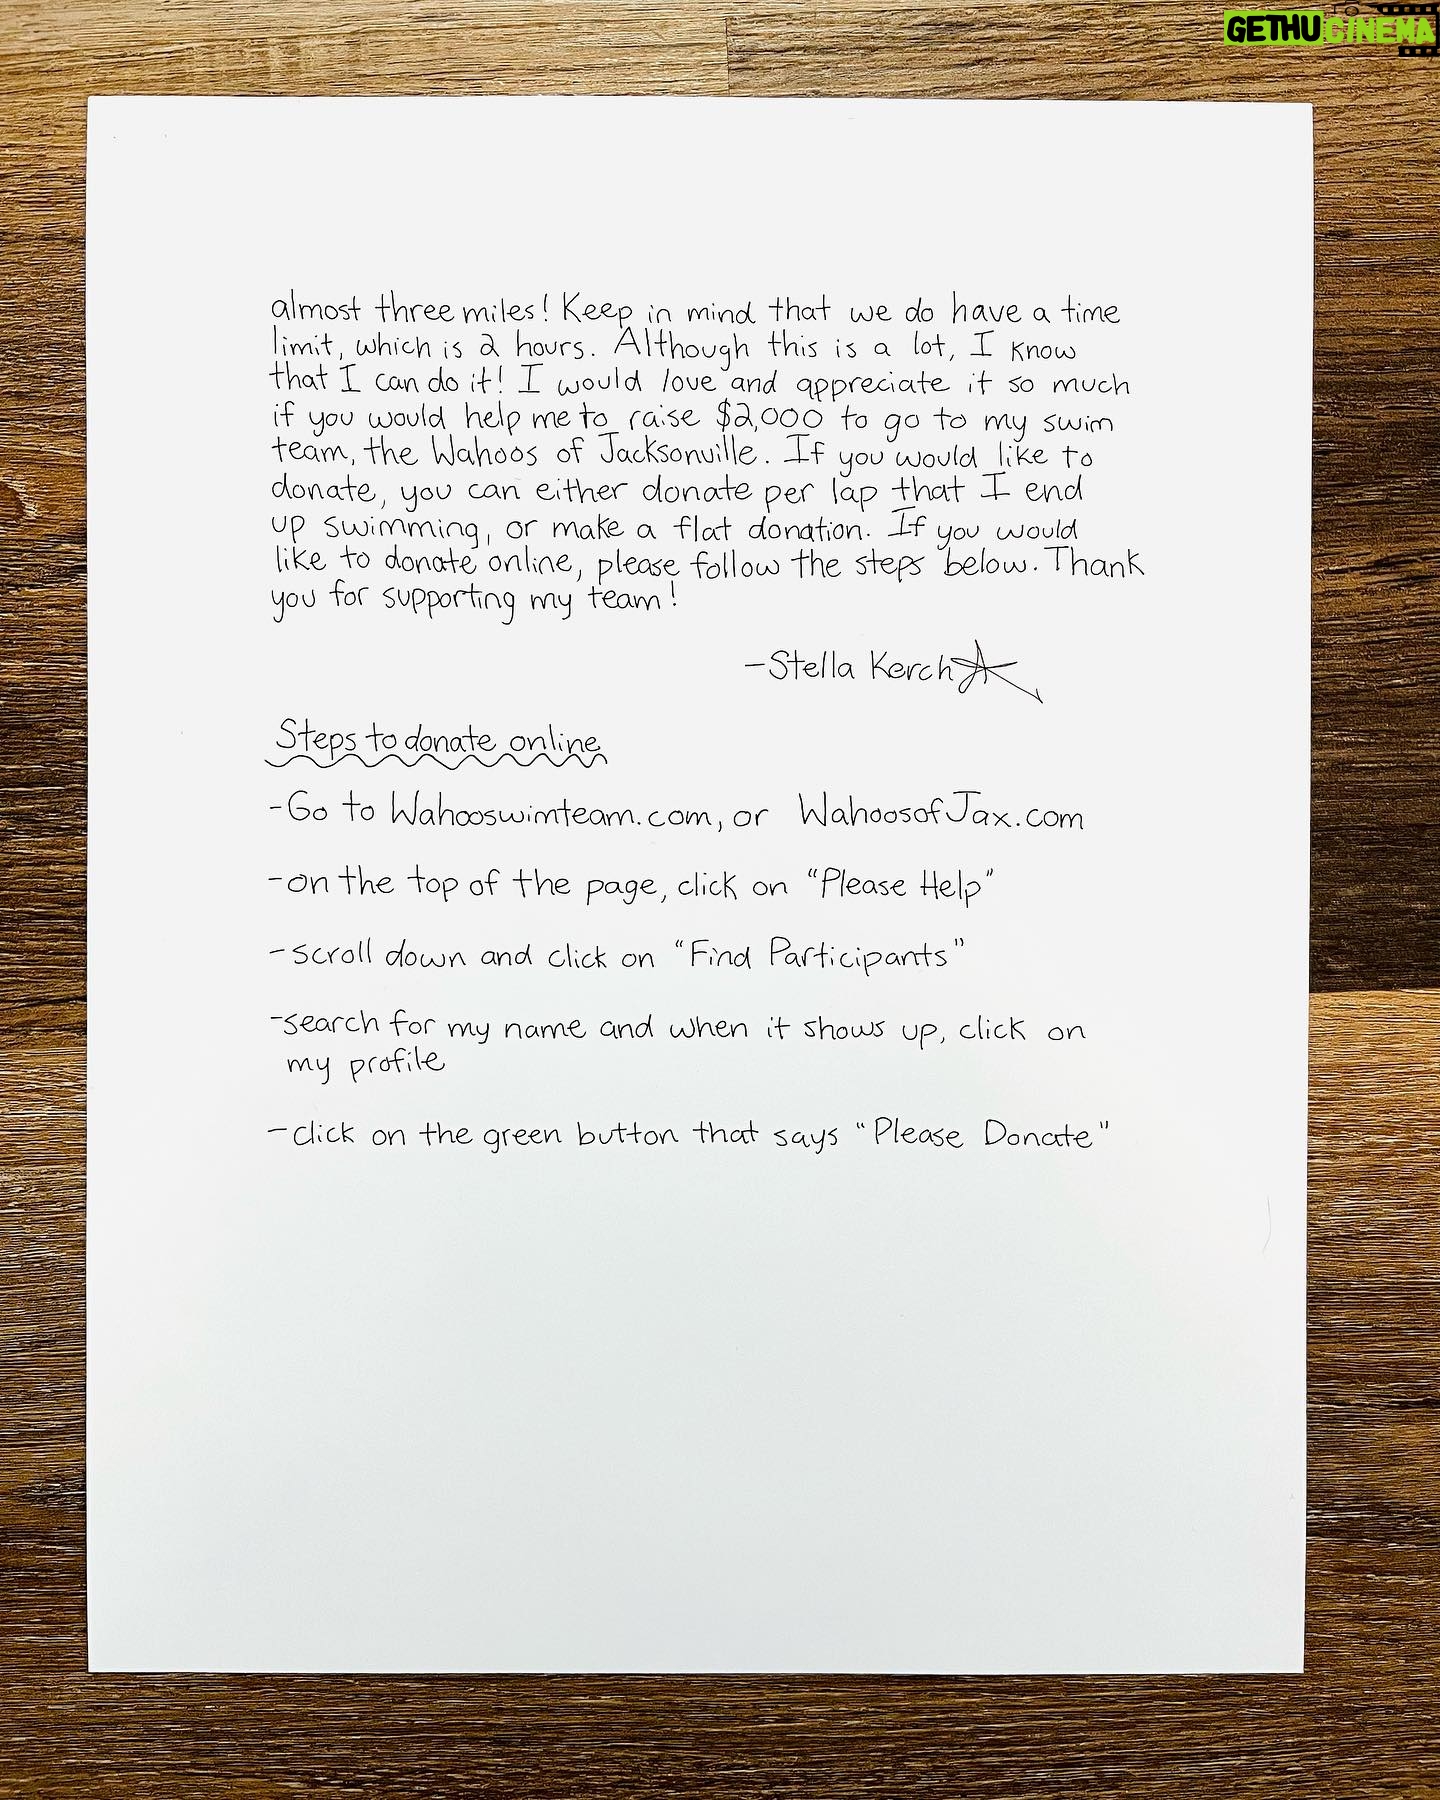 GETHUCINEMA
almost three miles! Keep in mind that we do have a time
limit, which is 2 hours. Although this is a lot, I know
that I can do it! I would love and appreciate it so much
if you would help me to raise $2,000 to go to my swim
team, the Wahoos of Jacksonville. If you would like to
donate, you can either donate per lap that I end
up swimming, or make a flat donation. If you would
like to donate online, please follow the steps below. Thank
you for supporting my team!
-Stella Kerch
Steps to donate online
-Go to Wahooswimteam.com, or WahoosofJax.com
-on the top of the page, click on "Please Help"
-scroll down and click on "Find Participants"
-search for my name and when it shows up, click on
my profile
-click on the green button that says "Please Donate"